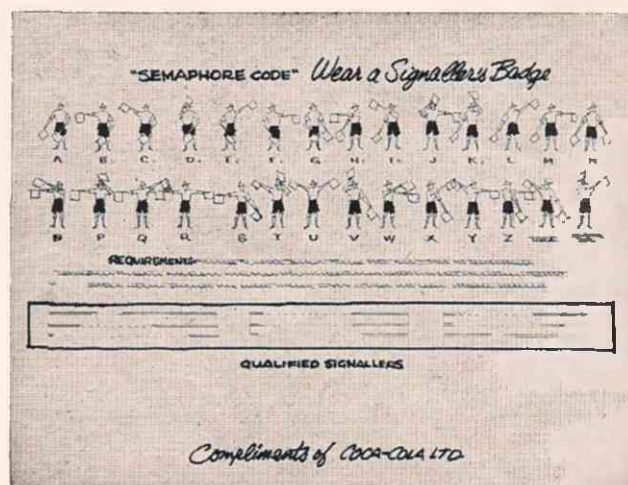 "SEMAPHORE CODE" Wear a Signaller's Badge
A. B. C. D. E. F. G. H. I. J K. L M N
P Q R S T U V W X Y Z
REQUIREMENTS
QUALIFIED SIGNALLERS
Compliments of COCA-COLA LTD.